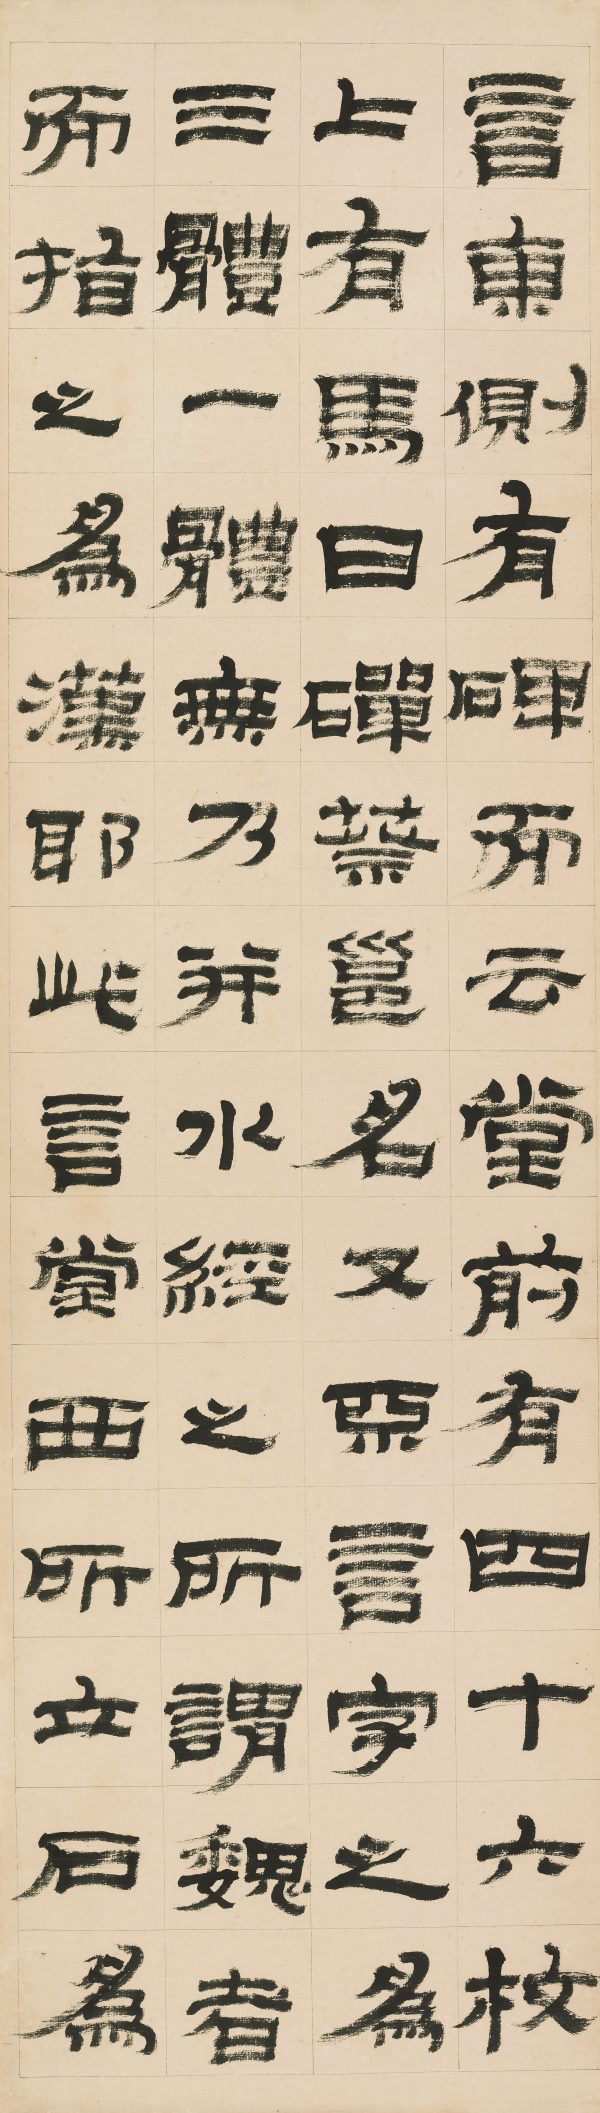 言東側有碑而云堂前有四十六枚
上有馬日磾蔡邕名又言字之爲
三體一體無乃并水經之所謂魏者
而指之爲漢耶此言堂西所立石爲